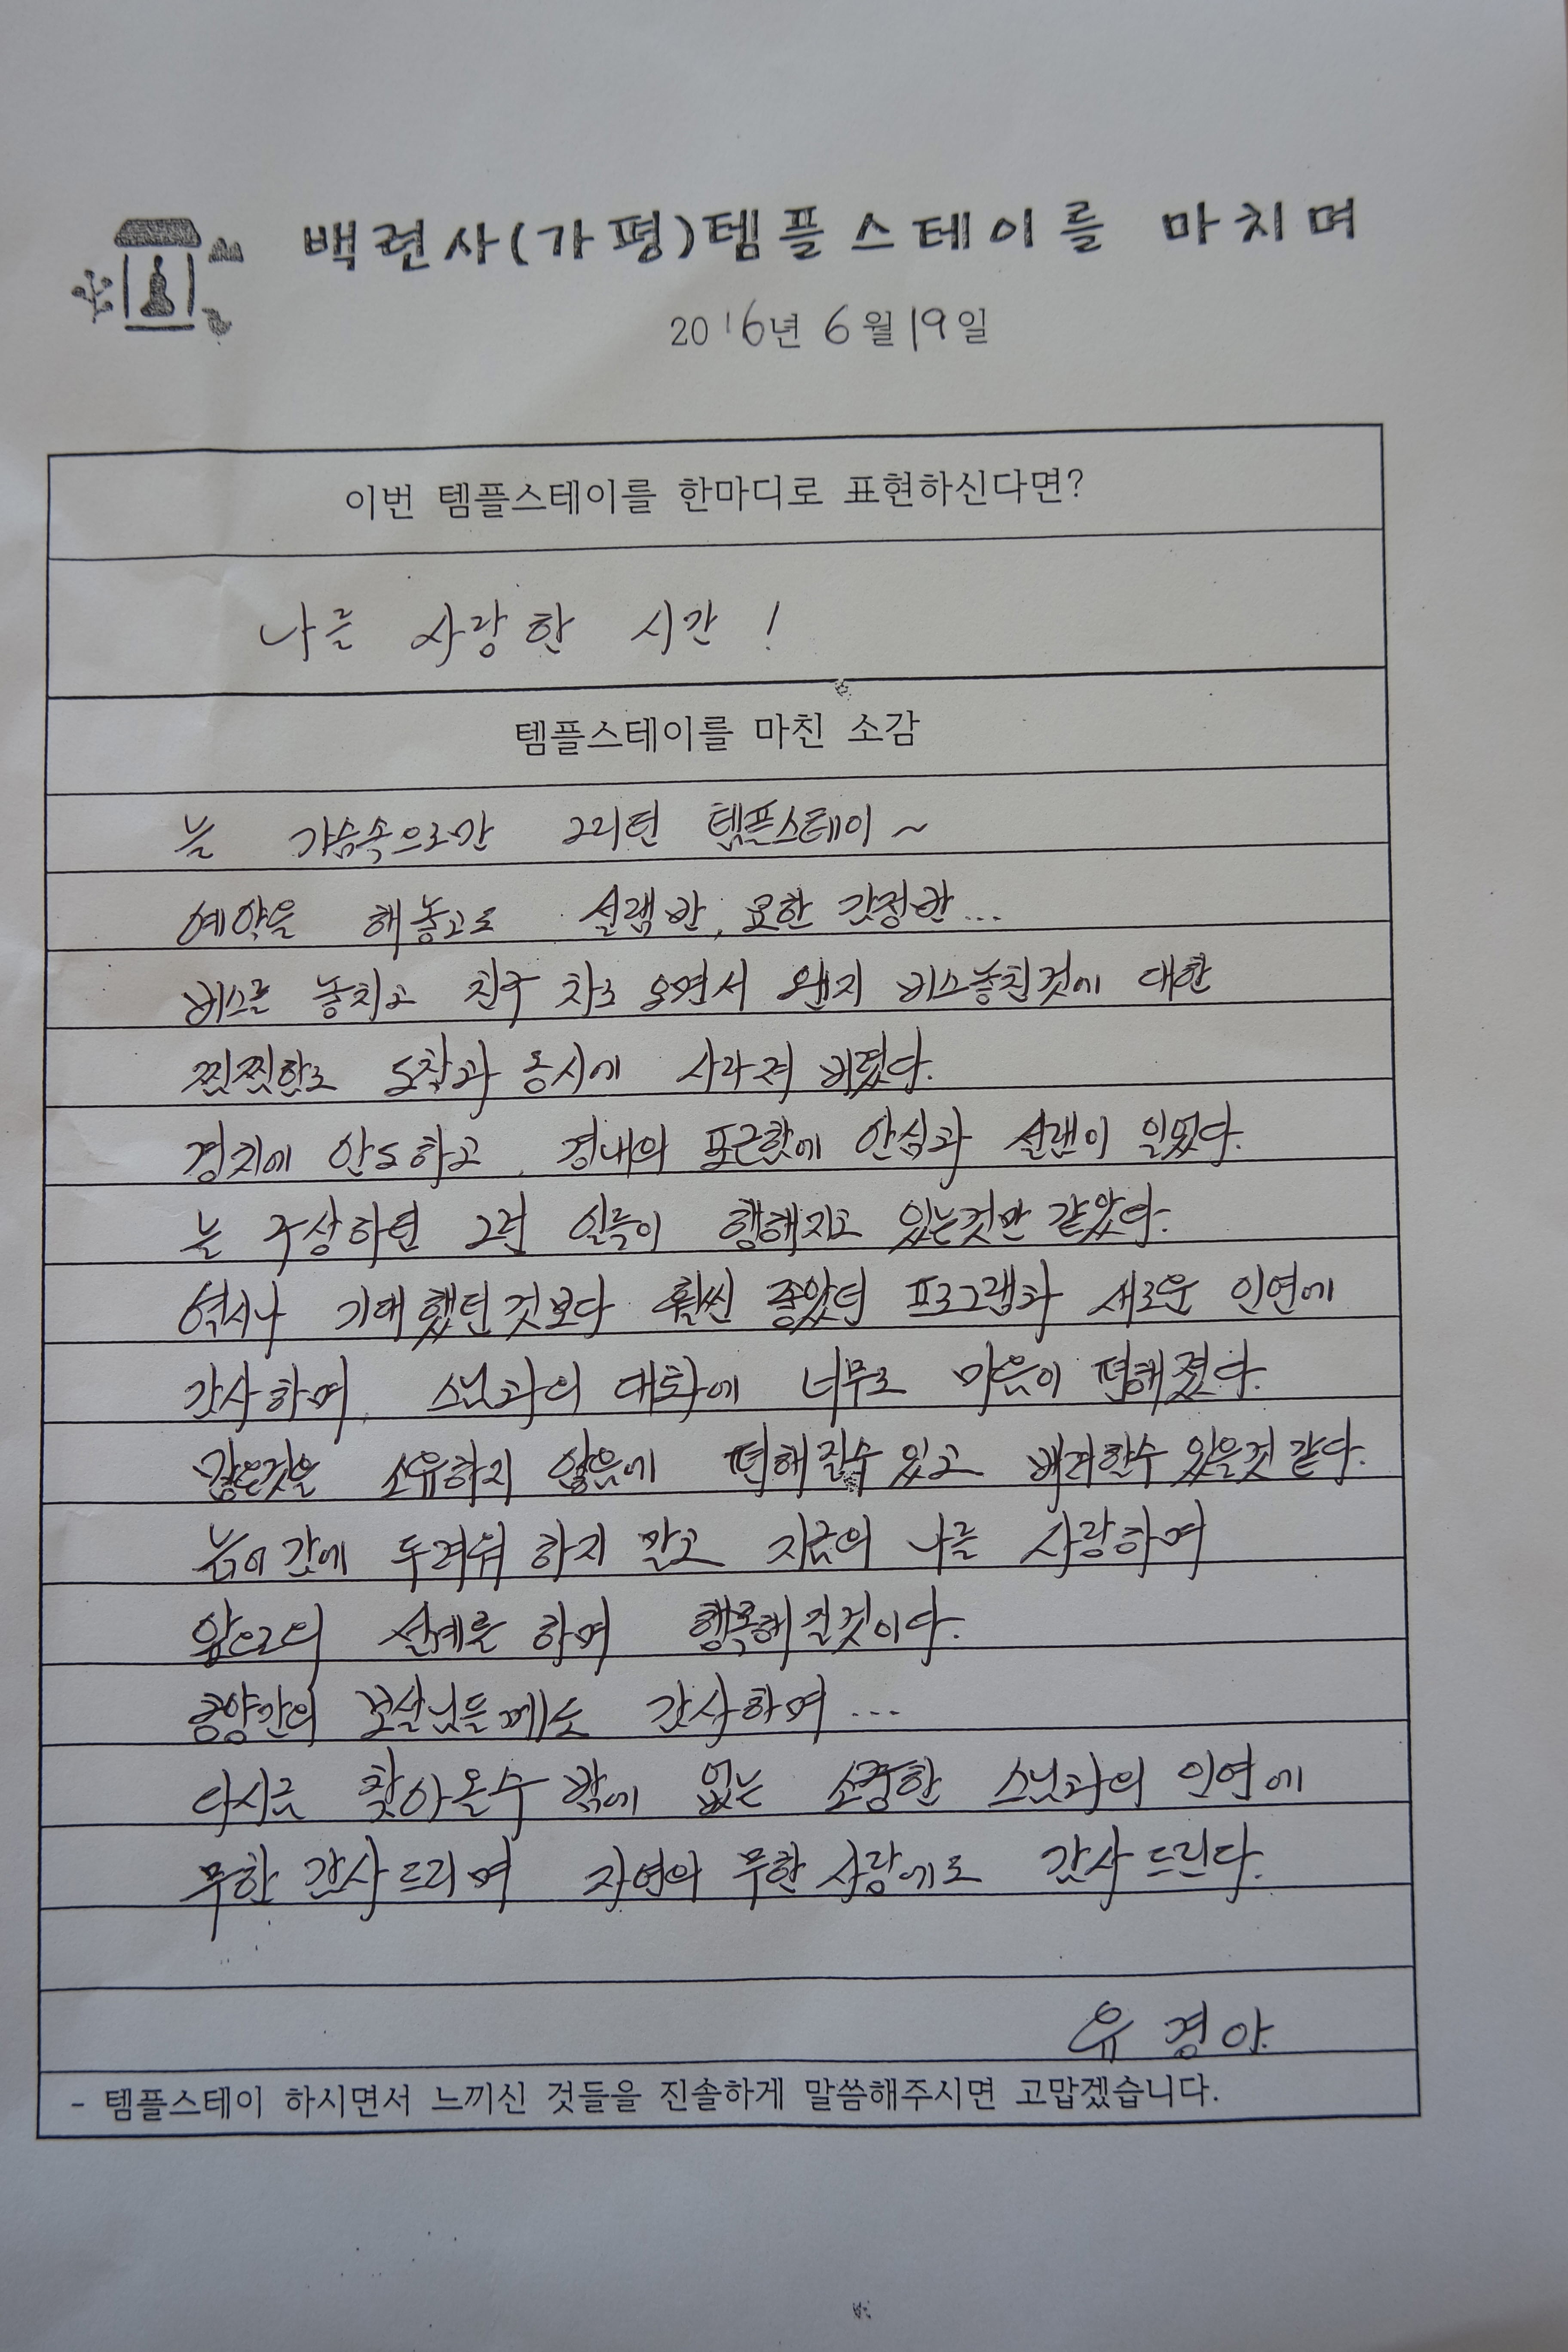 백련사(가평)템플스테이를 마치며
2016년 6월 19일
이번 템플스테이를 한마디로 표현하신다면?
나를 사랑한 시간!
템플스테이를 마친 소감
늘 가슴속으로만 그리던 템플스테이~
예약을 해놓고도 설램반, 묘한 감정반...
버스를 놓치고 친구 차로 오면서 왠지 버스놓친것에 대한
찝찝함도 도착과 동시에 사라져 버렸다.
경치에 안도하고, 경내의 포근함에 안심과 설램이 일었다.
늘 구상하던 그런 일들이 행해지고 있는것만 같았다.
역시나 기대했던것보다 훨씬 좋았던 프로그램과 새로운 인연에
감사하며, 스님과의 대화에 너무도 마음이 편해졌다.
많은것을 소유하지 않음에 편해질수있고 배려할수 있을것 같다.
늙어감에 두려워 하지 말고 지금의 나를 사랑하며
앞으로의 설계를 하며 행복해질것이다.
공양간의 보살님들께도 감사하며...
다시금 찾아올수 밖에 없는 소중한 스님과의 인연에
무한 감사드리며 자연의 무한 사랑에도 감사드린다.
유경아
- 템플스테이 하시면서 느끼신 것들을 진솔하게 말씀해주시면 고맙겠습니다.